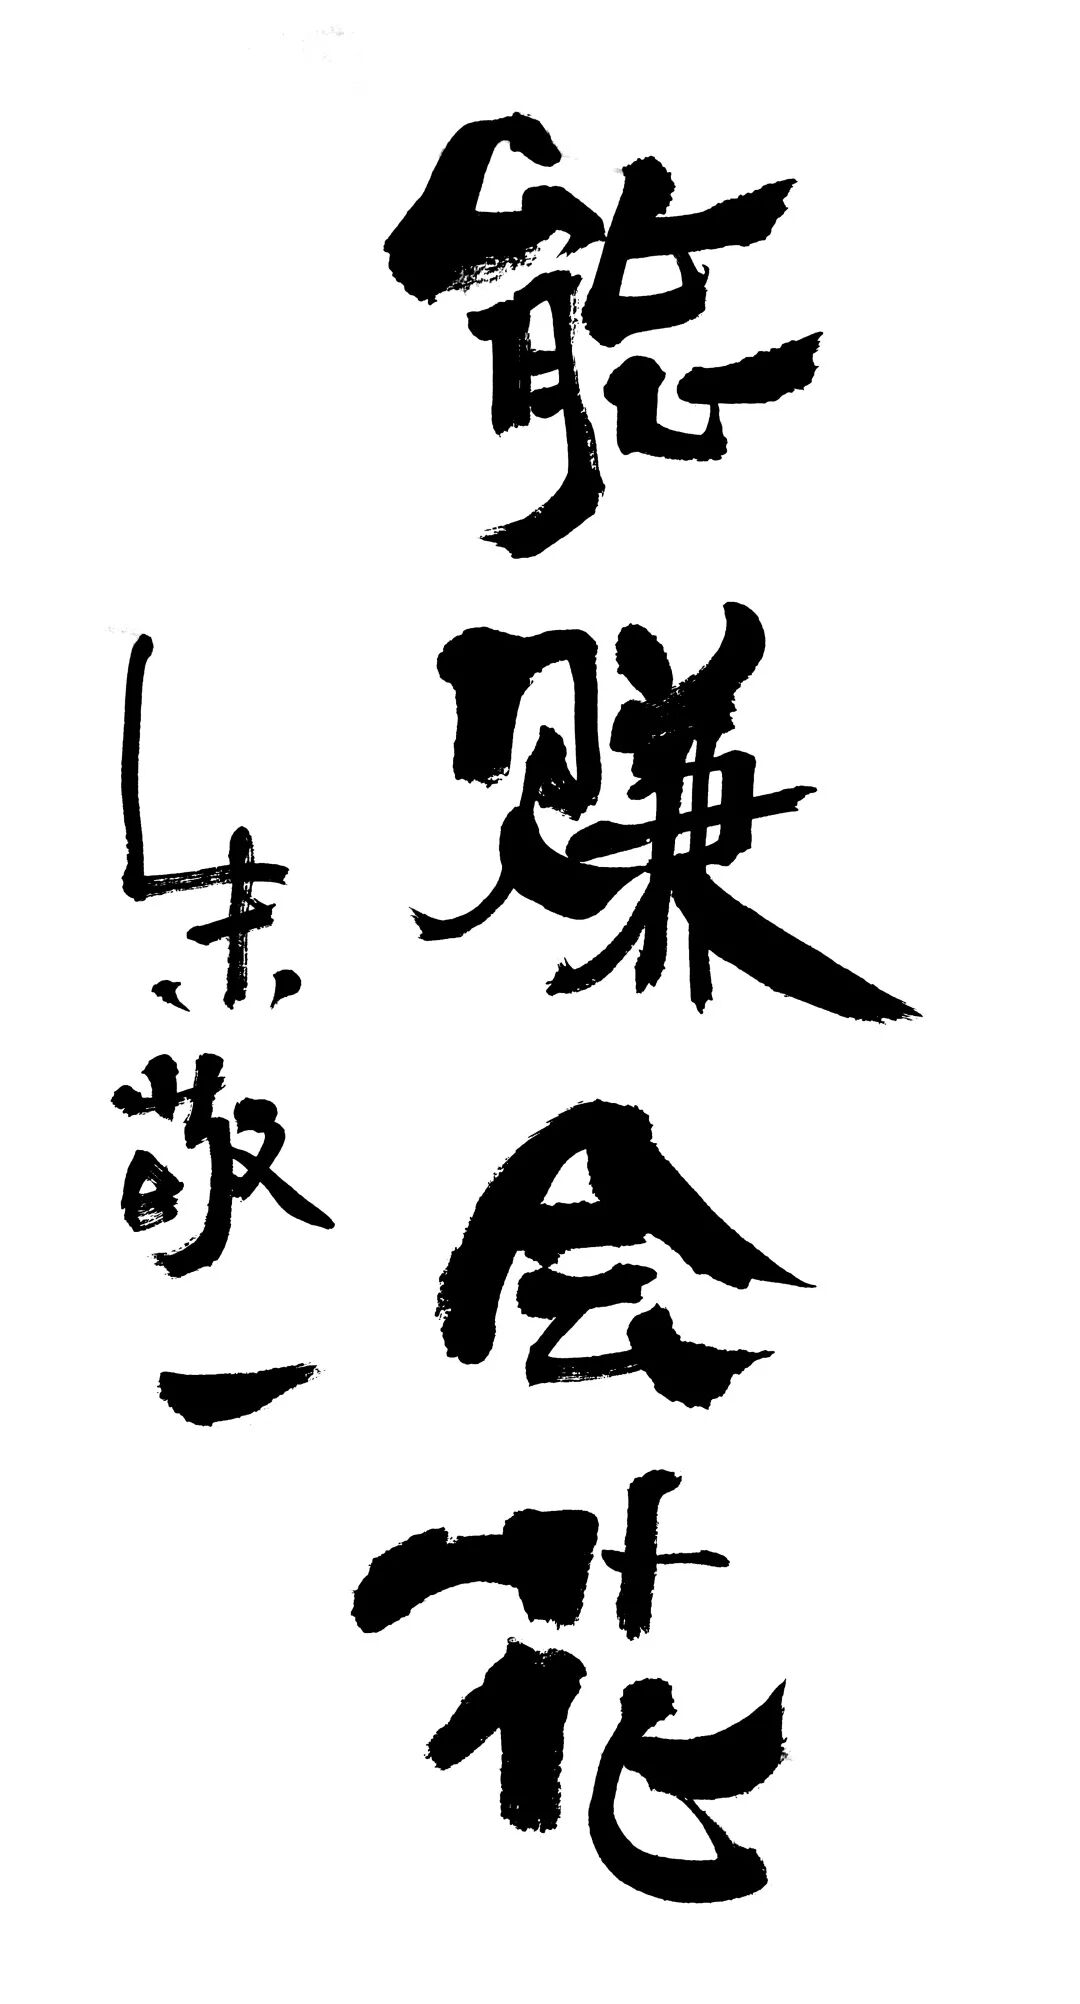 能赚会花
朱敬一